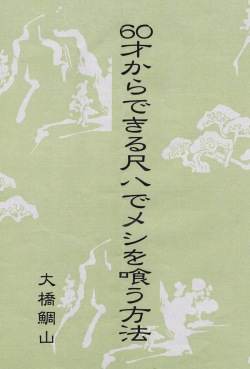 60才からできる尺八でメシを喰う方法
大橋鯛山